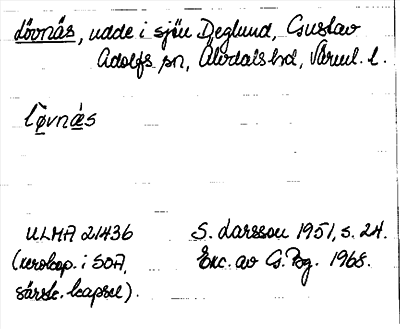 Lövnäs, udde i sjön Deglund, Gustav
Adolfs sn, Älvdals hd, Värml. l.
lǫ̈vnä̀s
ULMA 21436 S. Larsson 1951, s. 24.
(xerokop. i SOA, Exc. av G. Bg. 1968.
särsk. kapsel).